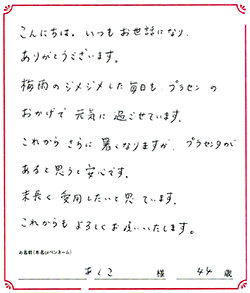 こんにちは。いつもお世話になり、
ありがとうございます。
梅雨のジメジメした毎日も、プラセンの
おかげで 元気に 過ごせています。
これから さらに 暑くなりますが、プラセンタが
あると思うと安心です。
末長く 愛用したいと思ています。
これからも よろしく お願いいたします。
お名前(本名orペンネーム)
あくこ 様 44 歳